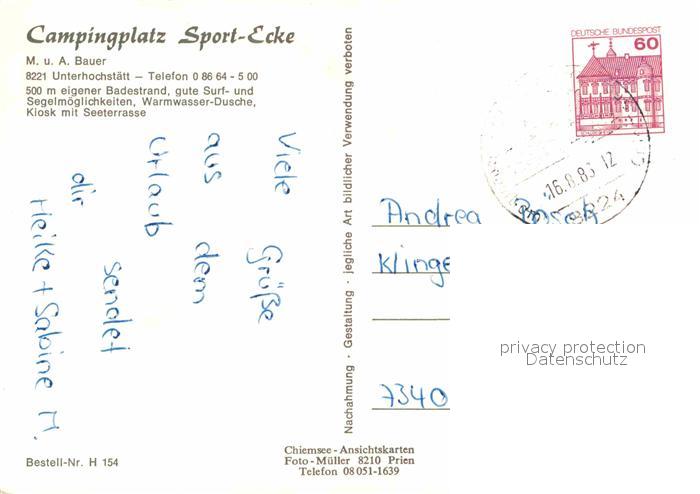 Campingplatz Sport-Ecke
M. u. A. Bauer
8221 Unterhochstätt — Telefon 0 86 64 - 5 00
500 m eigener Badestrand, gute Surf- und
Segelmöglichkeiten, Warmwasser-Dusche,
Kiosk mit Seeterrasse
Viele Grüße
aus dem
Urlaub
sendet
dir
Heike + Sabine M.
Bestell-Nr. H 154
Nachahmung · Gestaltung · jegliche Art bildlicher Verwendung verboten
Chiemsee-Ansichtskarten
Foto-Müller 8210 Prien
Telefon 08051-1639
DEUTSCHE BUNDESPOST
60
16.8.83-12
8224
Andrea
Klinge
7340
privacy protection
Datenschutz